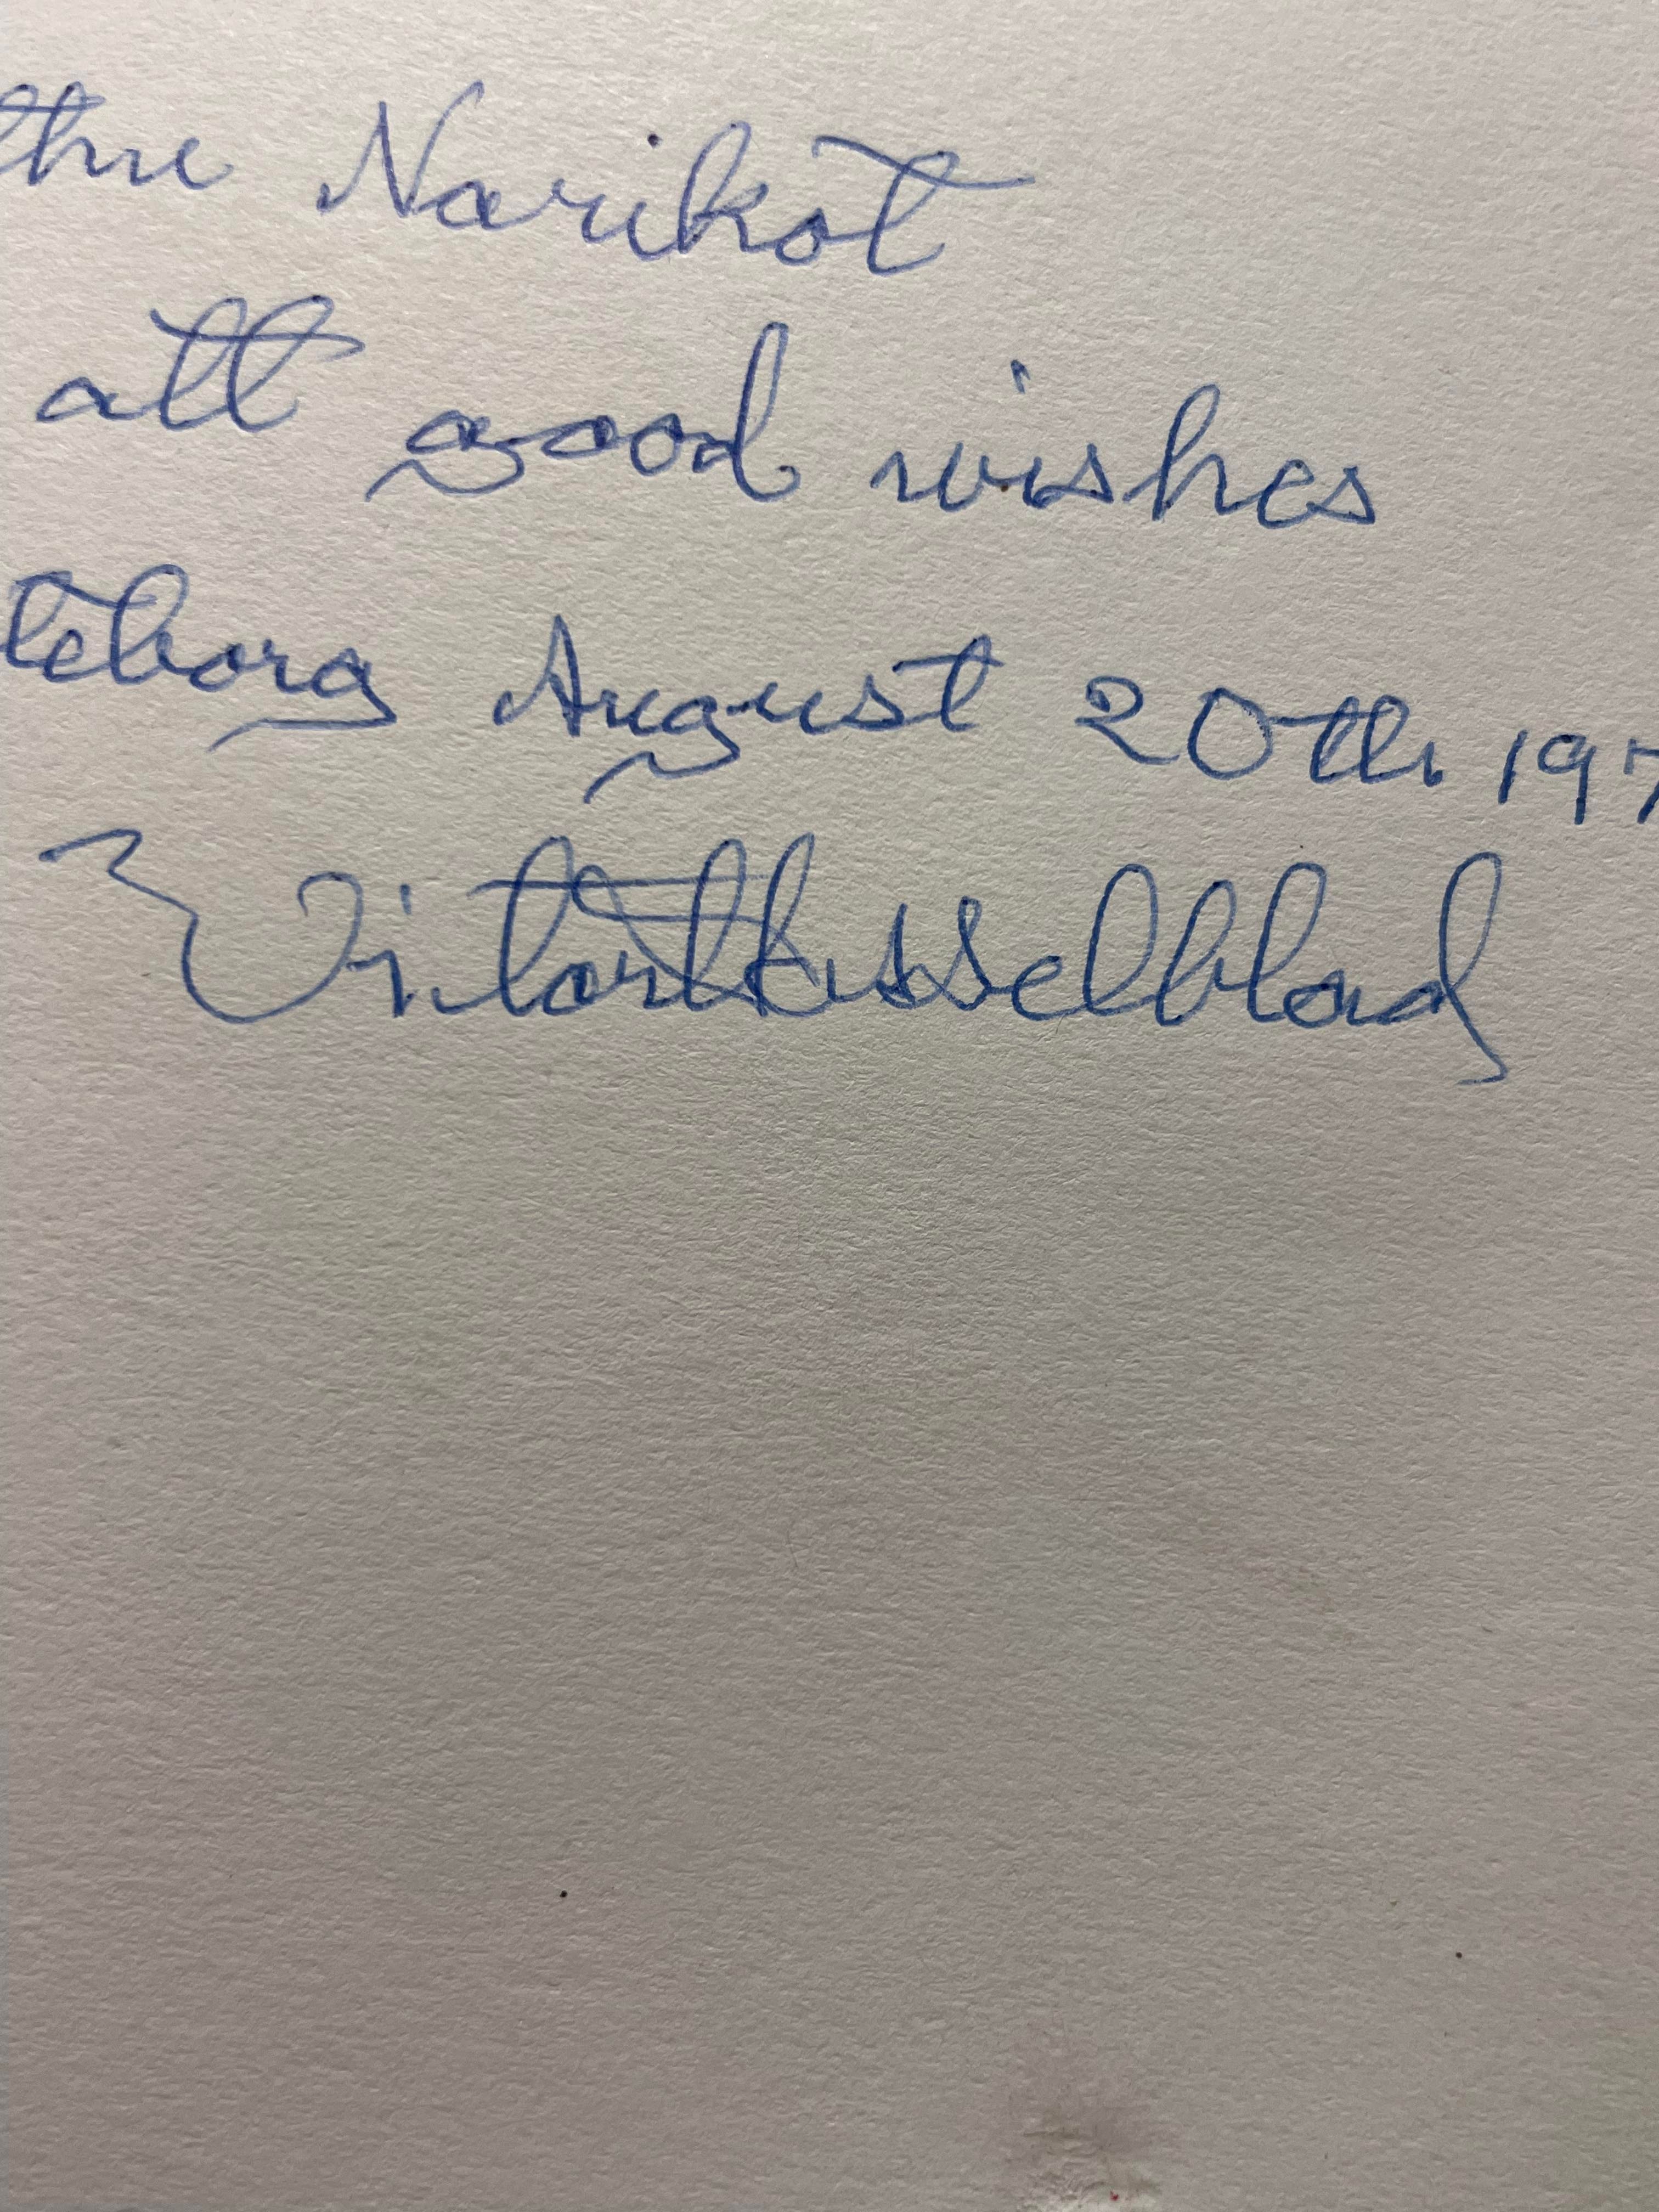 thre Narikot
all good wishes
teborg August 20th 197
Victor Hasselblad